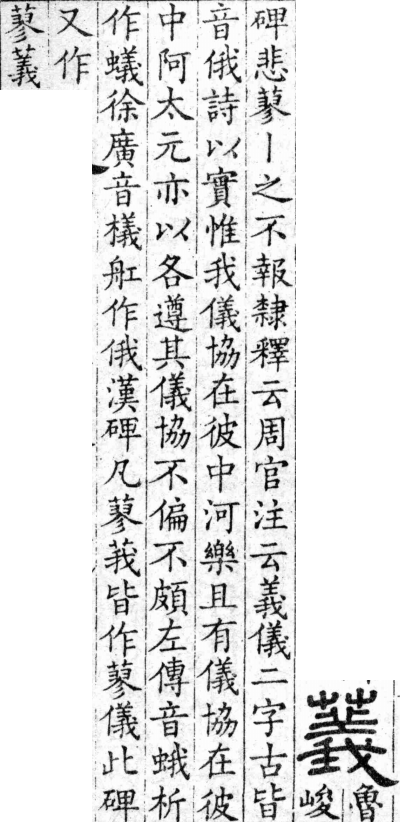 䕏
魯
峻
碑悲蓼丨之不報隸釋云周官注云義儀二字古皆
音俄詩以實惟我儀協在彼中河樂且有儀協在彼
中阿太元亦以各遵其儀協不偏不頗左傳音蛾析
作蟻徐廣音檥舡作俄漢碑凡蓼莪皆作蓼儀此碑
又作
蓼䕏